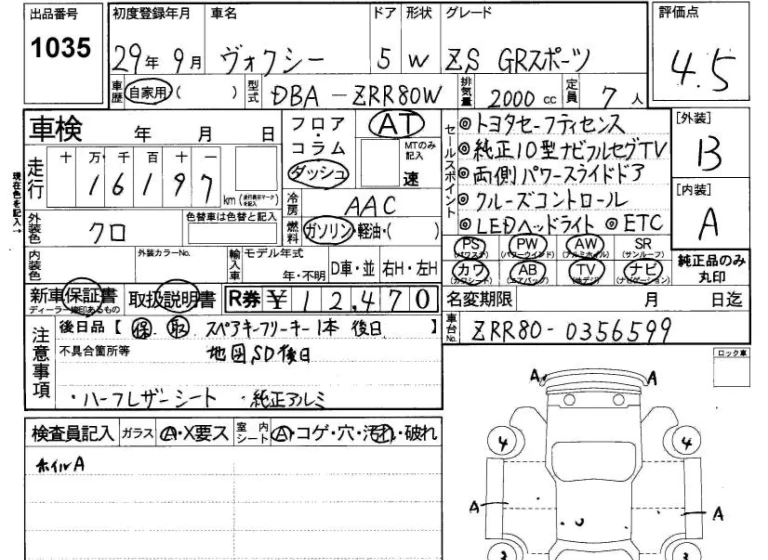 出品番号 初度登録年月 車名 ドア 形状 グレード 評価点
1035 29年 9月 ヴォクシー 5 W ZS GRスポーツ 4.5
車歴 自家用( ) 型式 DBA-ZRR80W 排気量 2000cc 定員 7人
車検 年 月 日 フロア・コラム AT セールスポイント ◎トヨタセーフティセンス [外装]
MTのみ記入 ◎純正10型ナビフルセグTV B
走行 十 万 千 百 十 一 ダッシュ 速 ◎両側パワースライドドア
16197 km 冷房 AAC ◎クルーズコントロール [内装]
現在色を記入→ 外装色 クロ 色替車は色替と記入 燃料 ガソリン・軽油・( ) ◎LEDヘッドライト ◎ETC A
内装色 外装カラーNo. 輸入車 モデル年式 PS PW AW SR 純正品のみ丸印
(パワーウインド) (アルミホイル) (サンルーフ)
年・不明 D車・並 右H・左H カワ AB TV ナビ
(カワシート) (エアバッグ) (地デジ) (ナビゲーション)
新車保証書 取扱説明書 R券 ¥12,470 名変期限 月 日迄
後日品【 保 取 スペアキーフリーキー1本 後日 】 車台No. ZRR80-0356599
注意事項 不具合箇所等 地図SD後日 ロック車
・ハーフレザーシート ・純正アルミ A A
検査員記入 ガラス A・X要ス 室内シート A・コゲ・穴・汚れ・破れ
ホイルA 4 4
A A
3 3